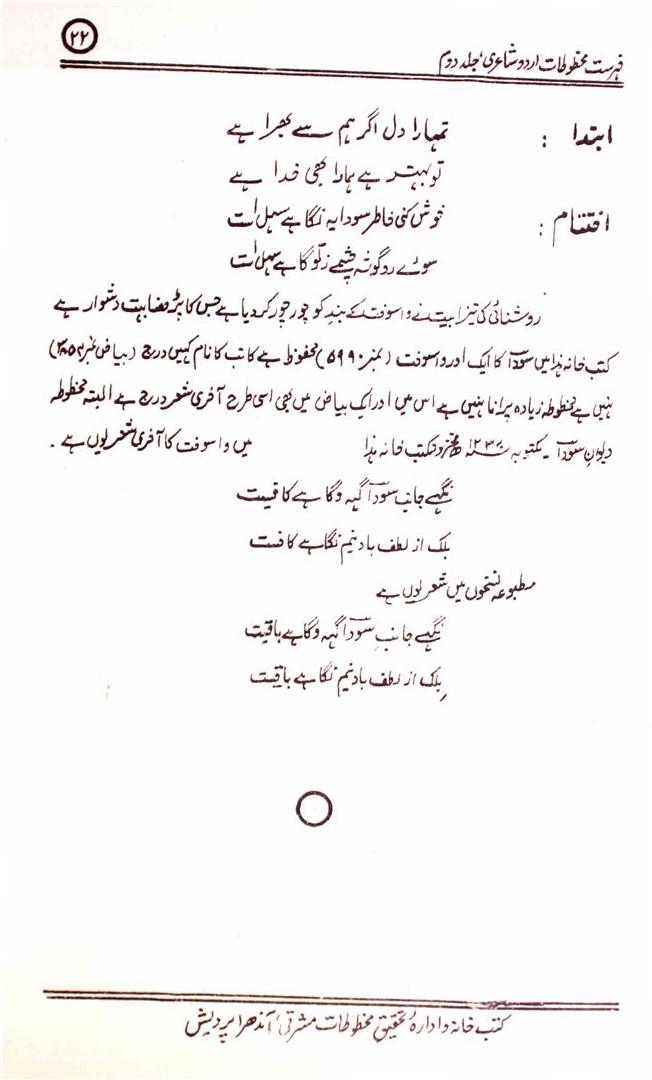 ۲۲
فہرست مخطوطات اردو شاعری، جلد دوم
ابتدا : تمہارا دل اگر ہم سے پھرا ہے
تو بہتر ہے ہمارا بھی خدا ہے
اختتام : خوش کنی خاطر سودا بہ نگاہے سہل است
سوئے رد گوشہ چشمے ز تو گاہے سہل است
روشنائی کی تیزابیت نے واسوخت کے بند کو چور چور کر دیا ہے جس کا پڑھنا بہت دشوار ہے
کتب خانہ ہذا میں سوداؔ کا ایک اور واسوخت (نمبر ۵۹۹۰) محفوظ ہے کاتب کا نام کہیں درج (بیاض نمبر ۳۸۵۲)
نہیں ہے مخطوطہ زیادہ پرانا نہیں ہے اس میں اور ایک بیاض میں بھی اسی طرح آخری شعر درج ہے البتہ مخطوطہ
دیوانِ سوداؔ مکتوبہ ۱۲۳۷ھ مخزونہ کتب خانہ ہذا میں واسوخت کا آخری شعر یوں ہے ۔
نگہے جانب سوداؔ گہہ و گاہے کافیست
بلک از لطف باد نیم نگاہے کافست
مطبوعہ نسخوں میں شعر یوں ہے
نگہے جانبِ سوداؔ گہہ و گاہے باقیت
بلک از لطف باد نیم نگاہے باقیت
کتب خانہ و ادارۂ تحقیق مخطوطات مشرقی، آندھرا پردیش